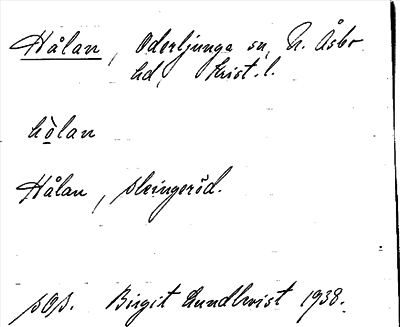 Hålan, Oderljunga sn, N. Åsbo
hd, Krist. l.
hòlan
Hålan, Slingeröd.
sOs. Birgit Lundkvist 1938.